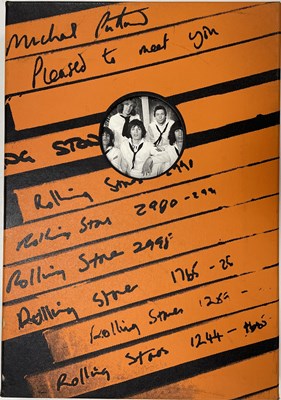 Michael Putland
Pleased to meet you
Rolling Stones 2990
Rolling Stones 2980-299
Rolling Stones 2995
Rolling Stones 1765-
Rolling Stones
Rolling Stones 1244-